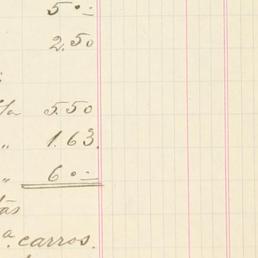 5.=
2.50
5.50
„ 1.63.
„ 6.=
tas
a. carros.